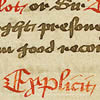 lot, or Sir
ght: preson
on good recor
Explicit